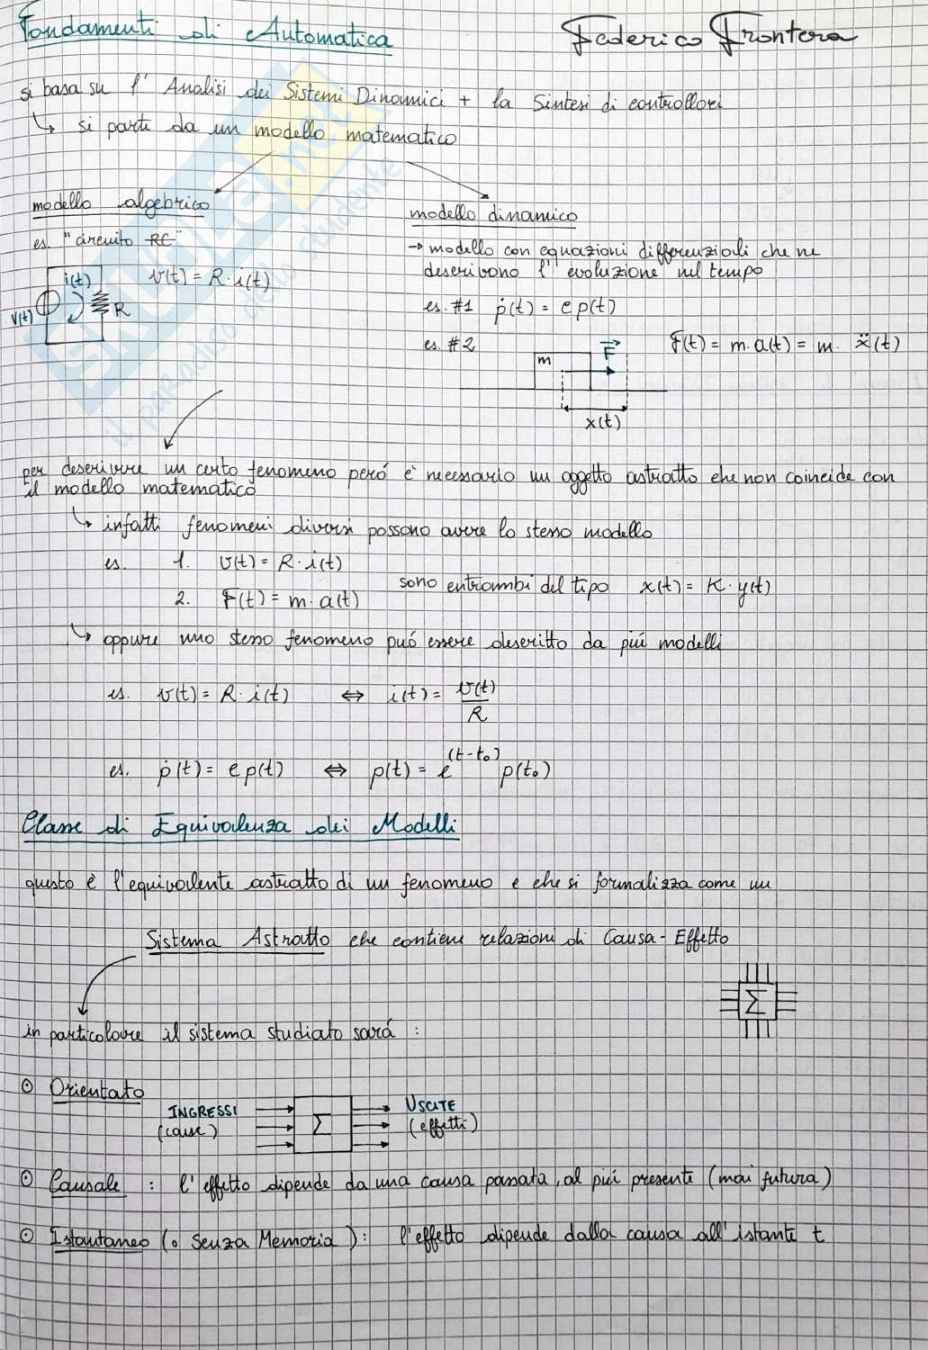 Fondamenti di Automatica
Federico Frontera
si basa su l'Analisi dei Sistemi Dinamici + la Sintesi di controllori
↳ si parte da un modello matematico
modello algebrico
es. "circuito RC"
v(t) = R·i(t)
i(t)
v(t)
R
modello dinamico
→ modello con equazioni differenziali che ne
descrivono l'evoluzione nel tempo
es. #1 ṗ(t) = e p(t)
es. #2
m
F
x(t)
F(t) = m·a(t) = m·ẍ(t)
per descrivere un certo fenomeno peró é necessario un oggetto astratto che non coincide con
il modello matematico
↳ infatti fenomeni diversi possono avere lo stesso modello
es. 1. v(t) = R·i(t)
2. F(t) = m·a(t)
sono entrambi del tipo x(t) = K·y(t)
↳ oppure uno stesso fenomeno puó essere descritto da piú modelli
es. v(t) = R·i(t) ⇔ i(t) = v(t)/R
es. ṗ(t) = e p(t) ⇔ p(t) = e^(t-t₀) p(t₀)
Classe di Equivalenza dei Modelli
questo é l'equivalente astratto di un fenomeno e che si formalizza come un
Sistema Astratto che contiene relazioni di Causa-Effetto
Σ
in particolare il sistema studiato sará :
⊙ Orientato
INGRESSI
(cause)
Σ
USCITE
(effetti)
⊙ Causale : l'effetto dipende da una causa passata, al piú presente (mai futura)
⊙ Istantaneo (o Senza Memoria) : l'effetto dipende dalla causa all'istante t
SKUOLA.net
il paradiso dello studente